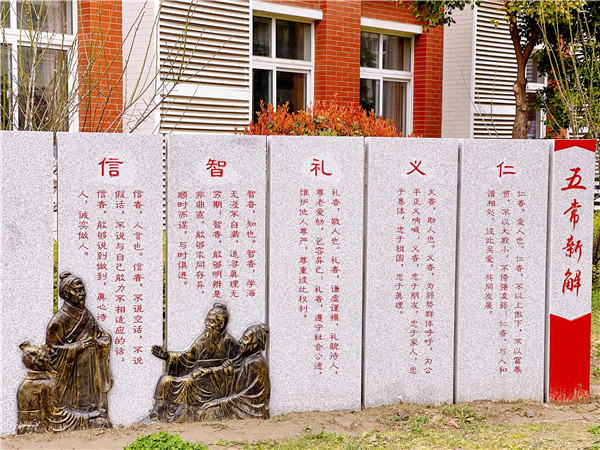 五常新解
仁
仁者，爱人也。仁者，不以上傲下，不以富暴
贫，不以大欺小，不恃强凌弱！仁者，与人和
谐相处，彼此关爱，共同发展。
义
义者，助人也。义者，为弱势群体呼吁，为公
平正义呐喊。义者，忠于朋友，忠于家人，忠
于集体，忠于祖国，忠于真理。
礼
礼者，敬人也。礼者，谦虚谨慎，礼貌待人，
尊老爱幼，包容异己。礼者，遵守社会公德，
维护他人尊严，尊重彼此权利。
智
智者，知也。智者，学海
无涯不自满，追寻真理无
穷期！智者，能够明辨是
非曲直，能够求同存异，
顺时而谋，与时俱进。
信
信者，人言也。信者，不说空话，不说
假话，不说与自己能力不相适应的话。
信者，能够说到做到，真心待
人，诚实做人。